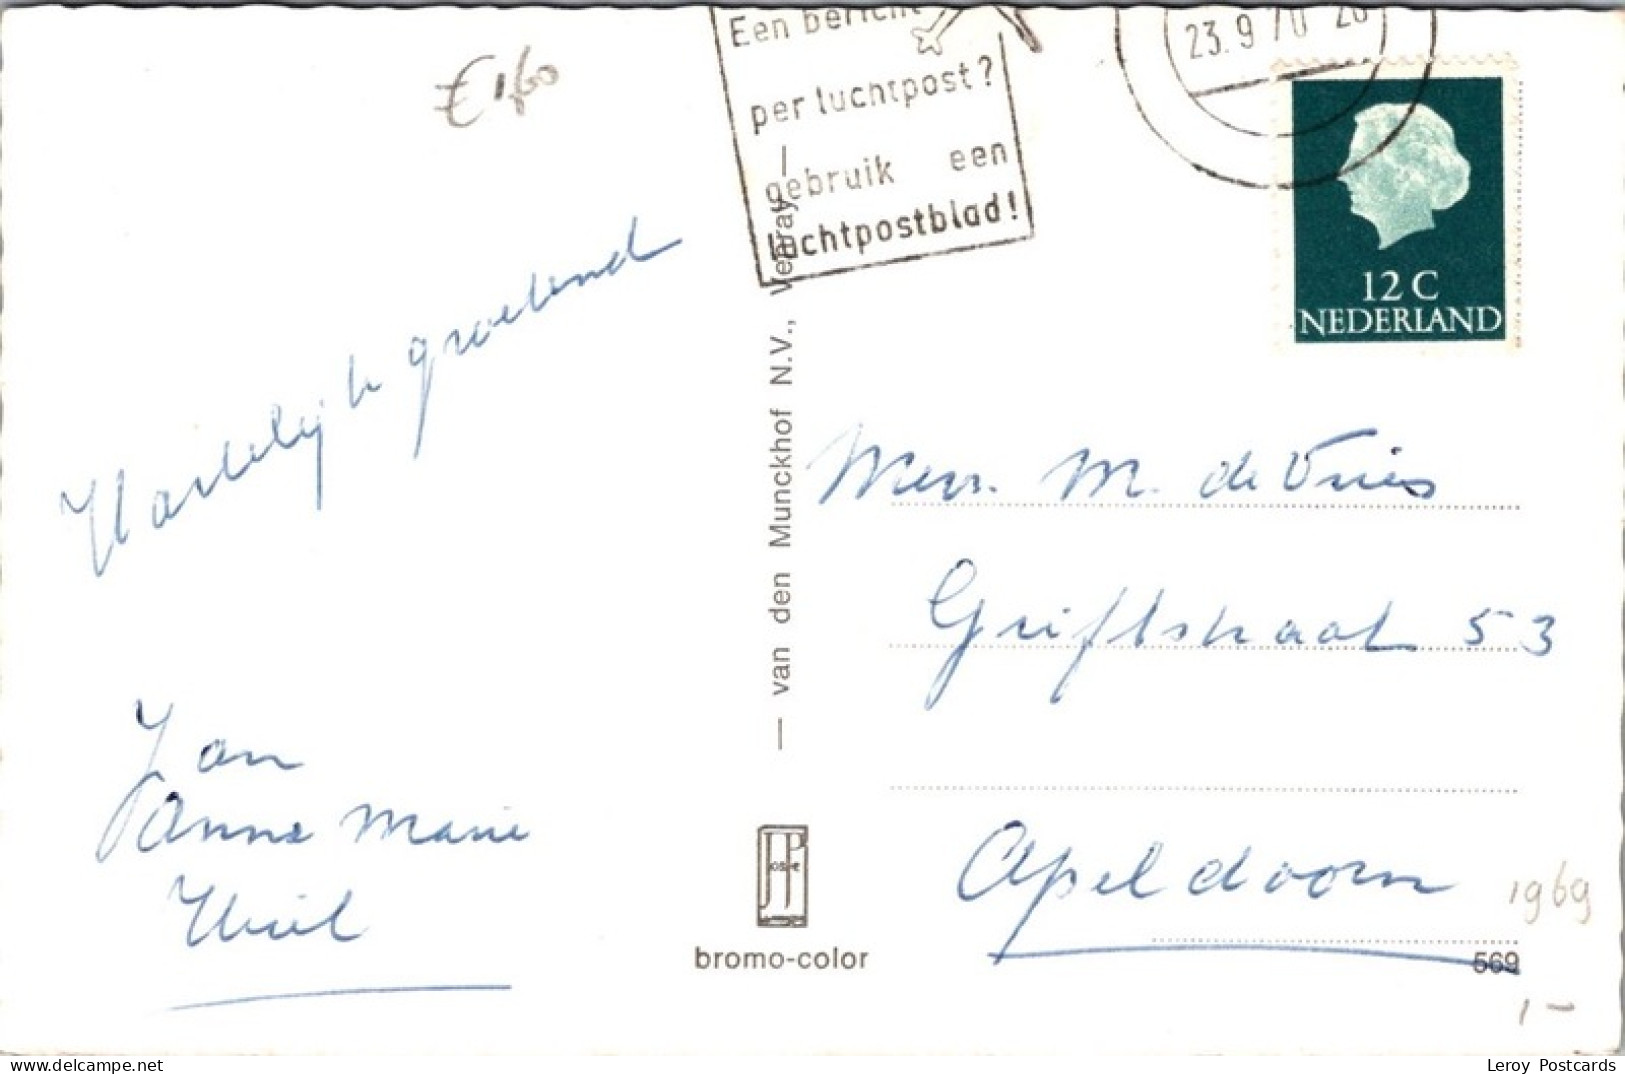 € 1,60
Een bericht
per luchtpost?
gebruik een
luchtpostblad!
23.9.70
12 C
NEDERLAND
Hartelijk groetend
Jan
Anne Marie
Wiel
— van den Munckhof N.V., Venray —
bromo-color
Mevr. M. de Vries
Griftstraat 53
Apeldoorn
1969
569
1 –
Leroy Postcards